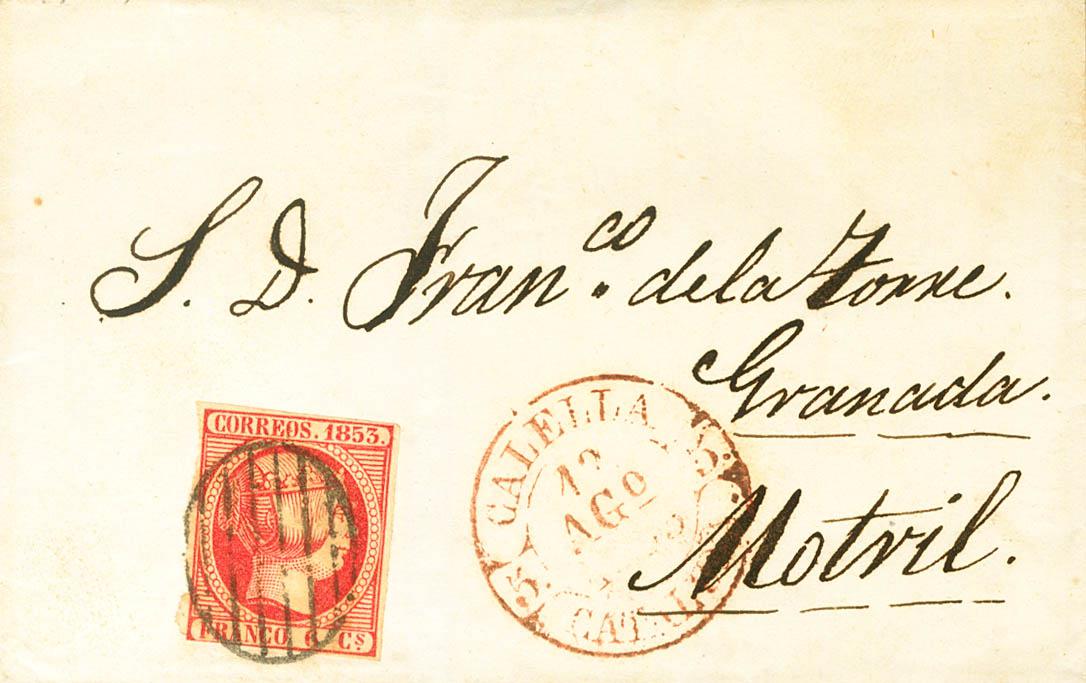 S. D. Fran.co de la Torre.
Granada.
Motril.
CORREOS. 1853.
FRANCO. 6 Cs
CALELLA
AGO
CATAL